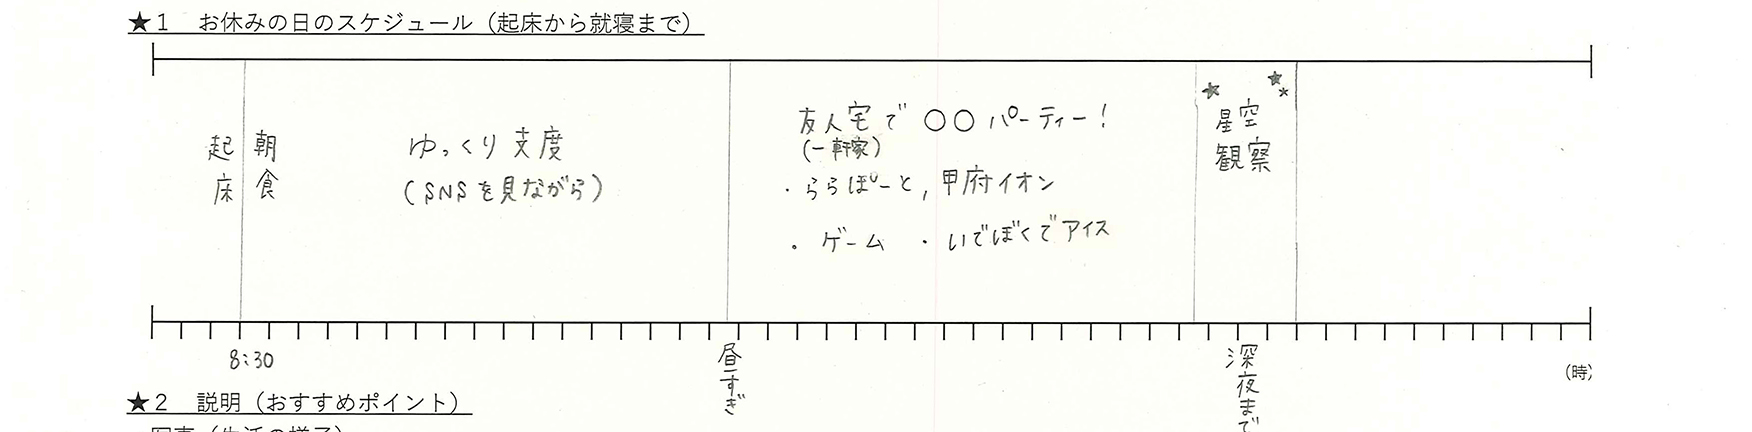 ★1　お休みの日のスケジュール（起床から就寝まで）
起床
朝食
ゆっくり支度
(SNSを見ながら)
友人宅で 〇〇パーティー！
(一軒家)
・ららぽーと, 甲府イオン
・ゲーム ・いでぼくでアイス
星空
観察
8:30
昼すぎ
深夜まで
(時)
★2　説明（おすすめポイント）
写真（生活の様子）